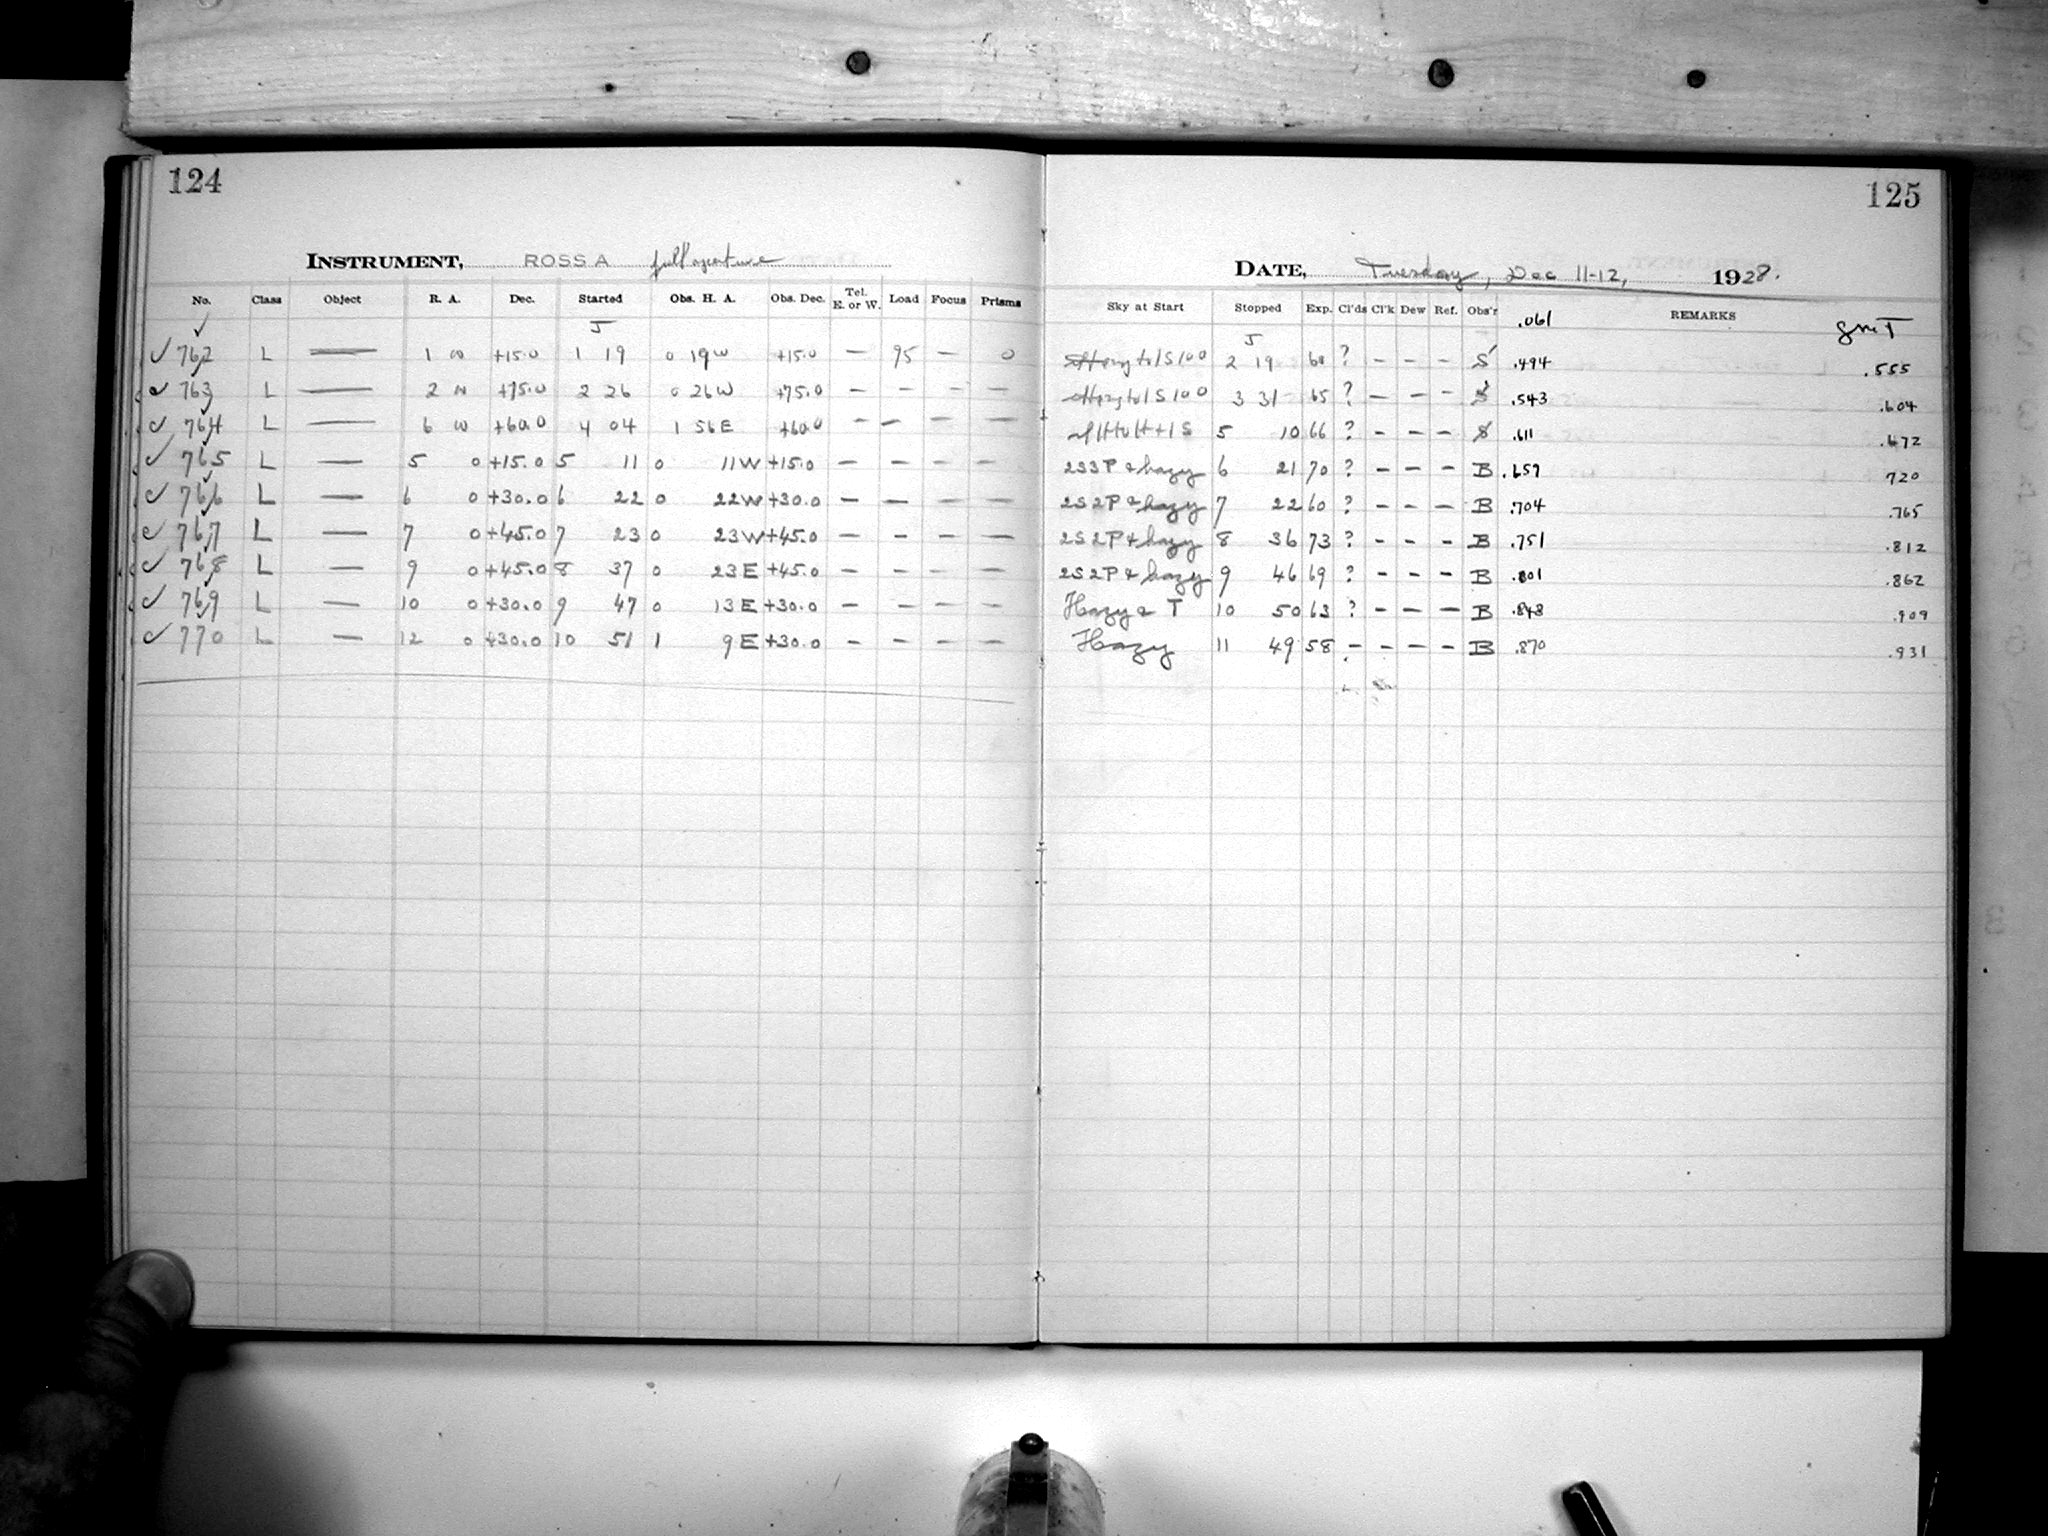 124
INSTRUMENT, ROSS A full aperture
No. Class Object R. A. Dec. Started Obs. H. A. Obs. Dec. Tel. E. or W. Load Focus Prisms
J
✓ 762 L — 1 0 +15.0 1 19 0 19W +15.0 — 95 — 0
✓ 763 L — 2 0 +75.0 2 26 0 26W +75.0 — — — —
✓ 764 L — 6 0 +60.0 4 04 1 56E +60.0 — — — —
✓ 765 L — 5 0 +15.0 5 11 0 11W +15.0 — — — —
✓ 766 L — 6 0 +30.0 6 22 0 22W +30.0 — — — —
✓ 767 L — 7 0 +45.0 7 23 0 23W +45.0 — — — —
✓ 768 L — 9 0 +45.0 8 37 0 23E +45.0 — — — —
✓ 769 L — 10 0 +30.0 9 47 0 13E +30.0 — — — —
✓ 770 L — 12 0 +30.0 10 51 1 9E +30.0 — — — —
125
DATE, Tuesday, Dec 11-12, 1928.
Sky at Start Stopped Exp. Cl'ds Cl'k Dew Ref. Obs'r .061 REMARKS GMT
J
1S100 2 19 60 ? - - - S .494 .555
1S100 3 31 65 ? - - - S .543 .604
5 10 66 ? - - - S .611 .672
2S3P & hazy 6 21 70 ? - - - B .659 720
2S2P & hazy 7 22 60 ? - - - B .704 .765
2S2P & hazy 8 36 73 ? - - - B .751 .812
2S2P & hazy 9 46 69 ? - - - B .801 .862
Hazy & T 10 50 63 ? - - - B .848 .909
Hazy 11 49 58 - - - - B .870 .931